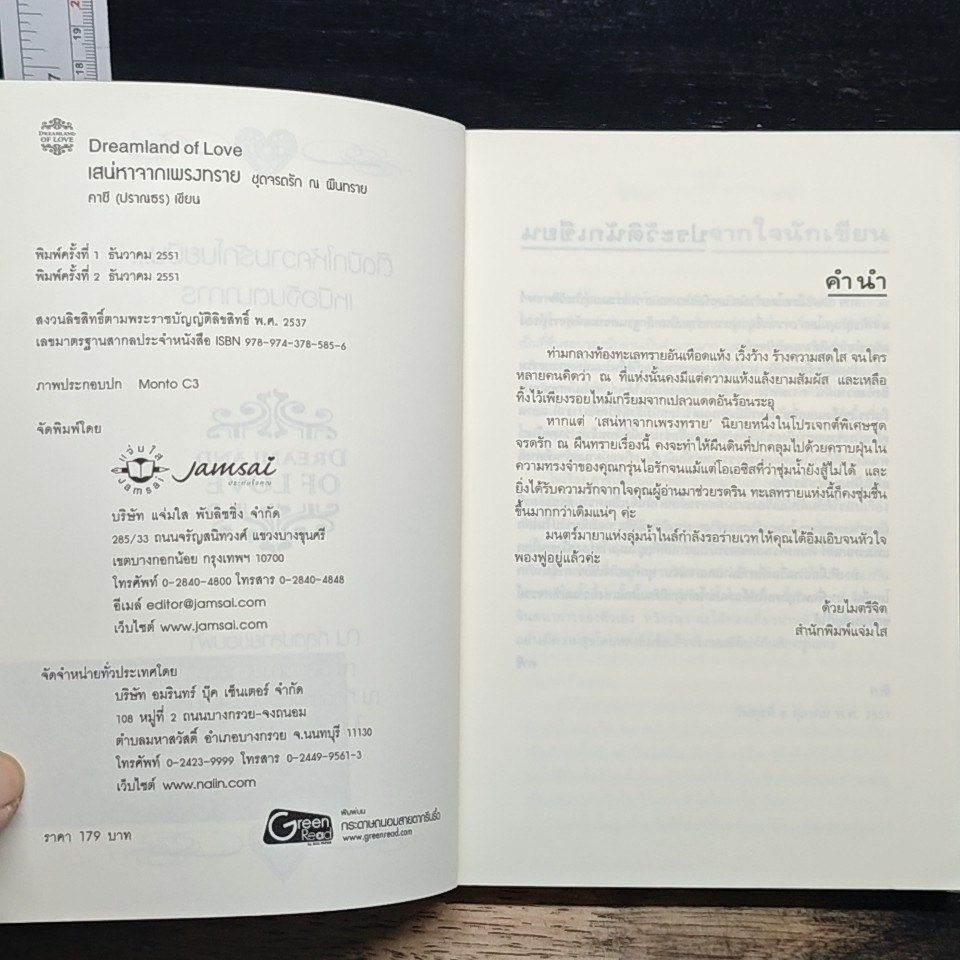 DREAMLAND
OF LOVE
Dreamland of Love
เสน่หาจากเพรงทราย ชุดจรดรัก ณ ผืนทราย
คาซี (ปราณธร) เขียน
พิมพ์ครั้งที่ 1 ธันวาคม 2551
พิมพ์ครั้งที่ 2 ธันวาคม 2551
สงวนลิขสิทธิ์ตามพระราชบัญญัติลิขสิทธิ์ พ.ศ. 2537
เลขมาตรฐานสากลประจำหนังสือ ISBN 978-974-378-585-6
ภาพประกอบปก Monto C3
จัดพิมพ์โดย
แจ่มใส
Jamsai
Jamsai
บริษัท แจ่มใส พับลิชชิ่ง จำกัด
285/33 ถนนจรัญสนิทวงศ์ แขวงบางขุนศรี
เขตบางกอกน้อย กรุงเทพฯ 10700
โทรศัพท์ 0-2840-4800 โทรสาร 0-2840-4848
อีเมล์ editor@jamsai.com
เว็บไซต์ www.jamsai.com
จัดจำหน่ายทั่วประเทศโดย
บริษัท อมรินทร์ บุ๊ค เซ็นเตอร์ จำกัด
108 หมู่ที่ 2 ถนนบางกรวย-จงถนอม
ตำบลมหาสวัสดิ์ อำเภอบางกรวย จ.นนทบุรี 11130
โทรศัพท์ 0-2423-9999 โทรสาร 0-2449-9561-3
เว็บไซต์ www.naiin.com
ราคา 179 บาท
Green
Read
พิมพ์บน
กระดาษถนอมสายตากรีนรี้ด
www.greenread.com
คำนำ
ท่ามกลางท้องทะเลทรายอันเหือดแห้ง เวิ้งว้าง ร้างความสดใส จนใคร
หลายคนคิดว่า ณ ที่แห่งนั้นคงมีแต่ความแห้งแล้งยามสัมผัส และเหลือ
ทิ้งไว้เพียงรอยไหม้เกรียมจากเปลวแดดอันร้อนระอุ
หากแต่ 'เสน่หาจากเพรงทราย' นิยายหนึ่งในโปรเจกต์พิเศษชุด
จรดรัก ณ ผืนทรายเรื่องนี้ คงจะทำให้ผืนดินที่ปกคลุมไปด้วยคราบฝุ่นใน
ความทรงจำของคุณกรุ่นไอรักจนแม้แต่โอเอซิสที่ว่าชุ่มน้ำยังสู้ไม่ได้ และ
ยิ่งได้รับความรักจากใจคุณผู้อ่านมาช่วยรดริน ทะเลทรายแห่งนี้ก็คงชุ่มชื้น
ขึ้นมากกว่าเดิมแน่ๆ ค่ะ
มนตร์มายาแห่งลุ่มน้ำไนล์กำลังรอร่ายเวทให้คุณได้อิ่มเอิบจนหัวใจ
พองฟูอยู่แล้วค่ะ
ด้วยไมตรีจิต
สำนักพิมพ์แจ่มใส